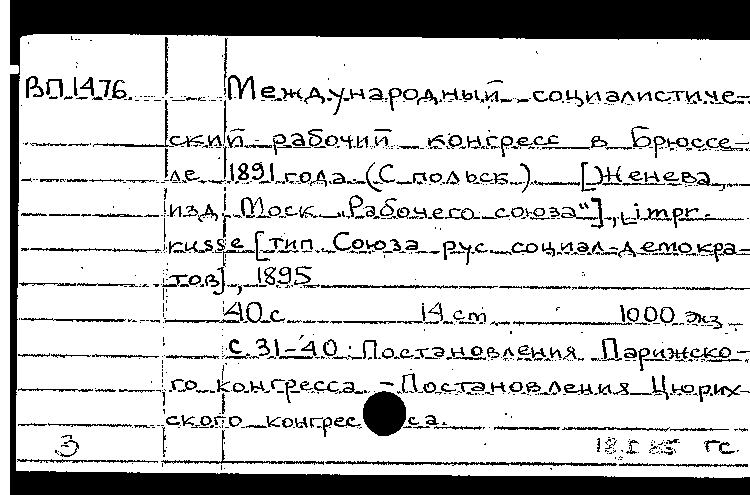 ВП 1476 Международный социалистиче-
ский рабочий конгресс в Брюссе-
ле 1891 года. (С польск.) [Женева,
изд. Моск. „Рабочего союза"], impr.
russe [тип. Союза рус. социал-демокра-
тов], 1895
40 с. 14 см 1000 экз.
С. 31-40: Постановления Парижско-
го конгресса. - Постановления Цюрих-
ского конгресса.
3 18.I 85 гс.